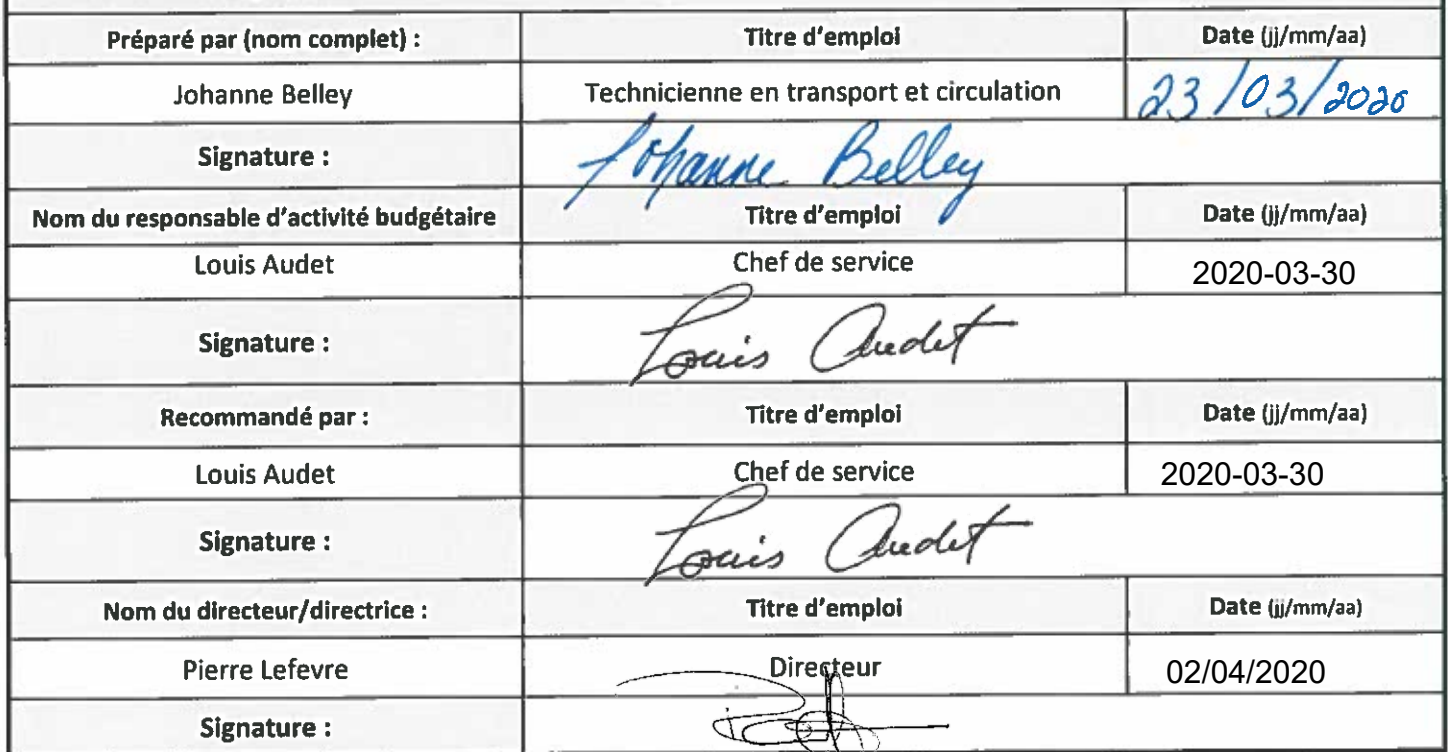 Préparé par (nom complet) : Titre d'emploi Date (jj/mm/aa)
Johanne Belley Technicienne en transport et circulation 23/03/2020
Signature : Johanne Belley
Nom du responsable d'activité budgétaire Titre d'emploi Date (jj/mm/aa)
Louis Audet Chef de service 2020-03-30
Signature : Louis Audet
Recommandé par : Titre d'emploi Date (jj/mm/aa)
Louis Audet Chef de service 2020-03-30
Signature : Louis Audet
Nom du directeur/directrice : Titre d'emploi Date (jj/mm/aa)
Pierre Lefevre Directeur 02/04/2020
Signature :